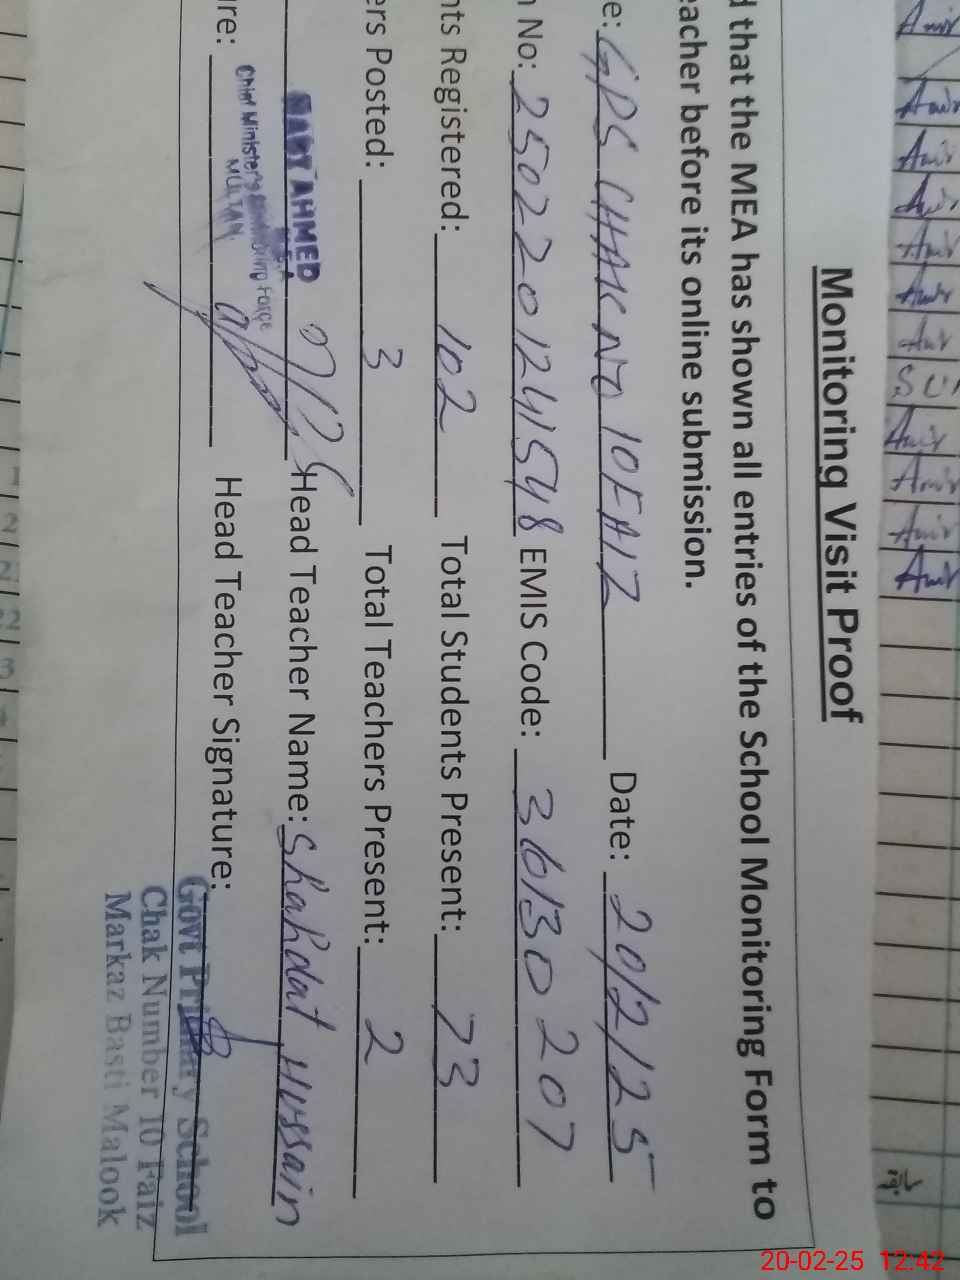 Monitoring Visit Proof
d that the MEA has shown all entries of the School Monitoring Form to
eacher before its online submission.
e: GPS CHAK NO 10FAIZ Date: 20/2/25
n No: 2502201241548 EMIS Code: 36130207
nts Registered: 102 Total Students Present: 73
ers Posted: 3 Total Teachers Present: 2
AHMED Head Teacher Name: Shahdat Hussain
re: Head Teacher Signature:
Chief Minister's Monitoring Force
MULTAN.
Govt Primary School
Chak Number 10 Faiz
Markaz Basti Malook
Amir
Amir
Amir
Amir
Amir
Amir
Amir
SUN
Amir
Amir
Amir
Amir
سابقہ
20-02-25 12:42